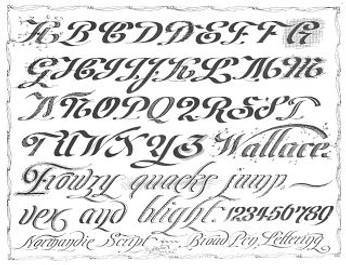 A B C D D E F F G
G H I I J K L M M
N N O P Q 2 R S S T
T U V W X Y Z Wallace
Frowzy quacks jump —
vex and blight. 1234567890
Normandie Script ~ Broad Pen Lettering